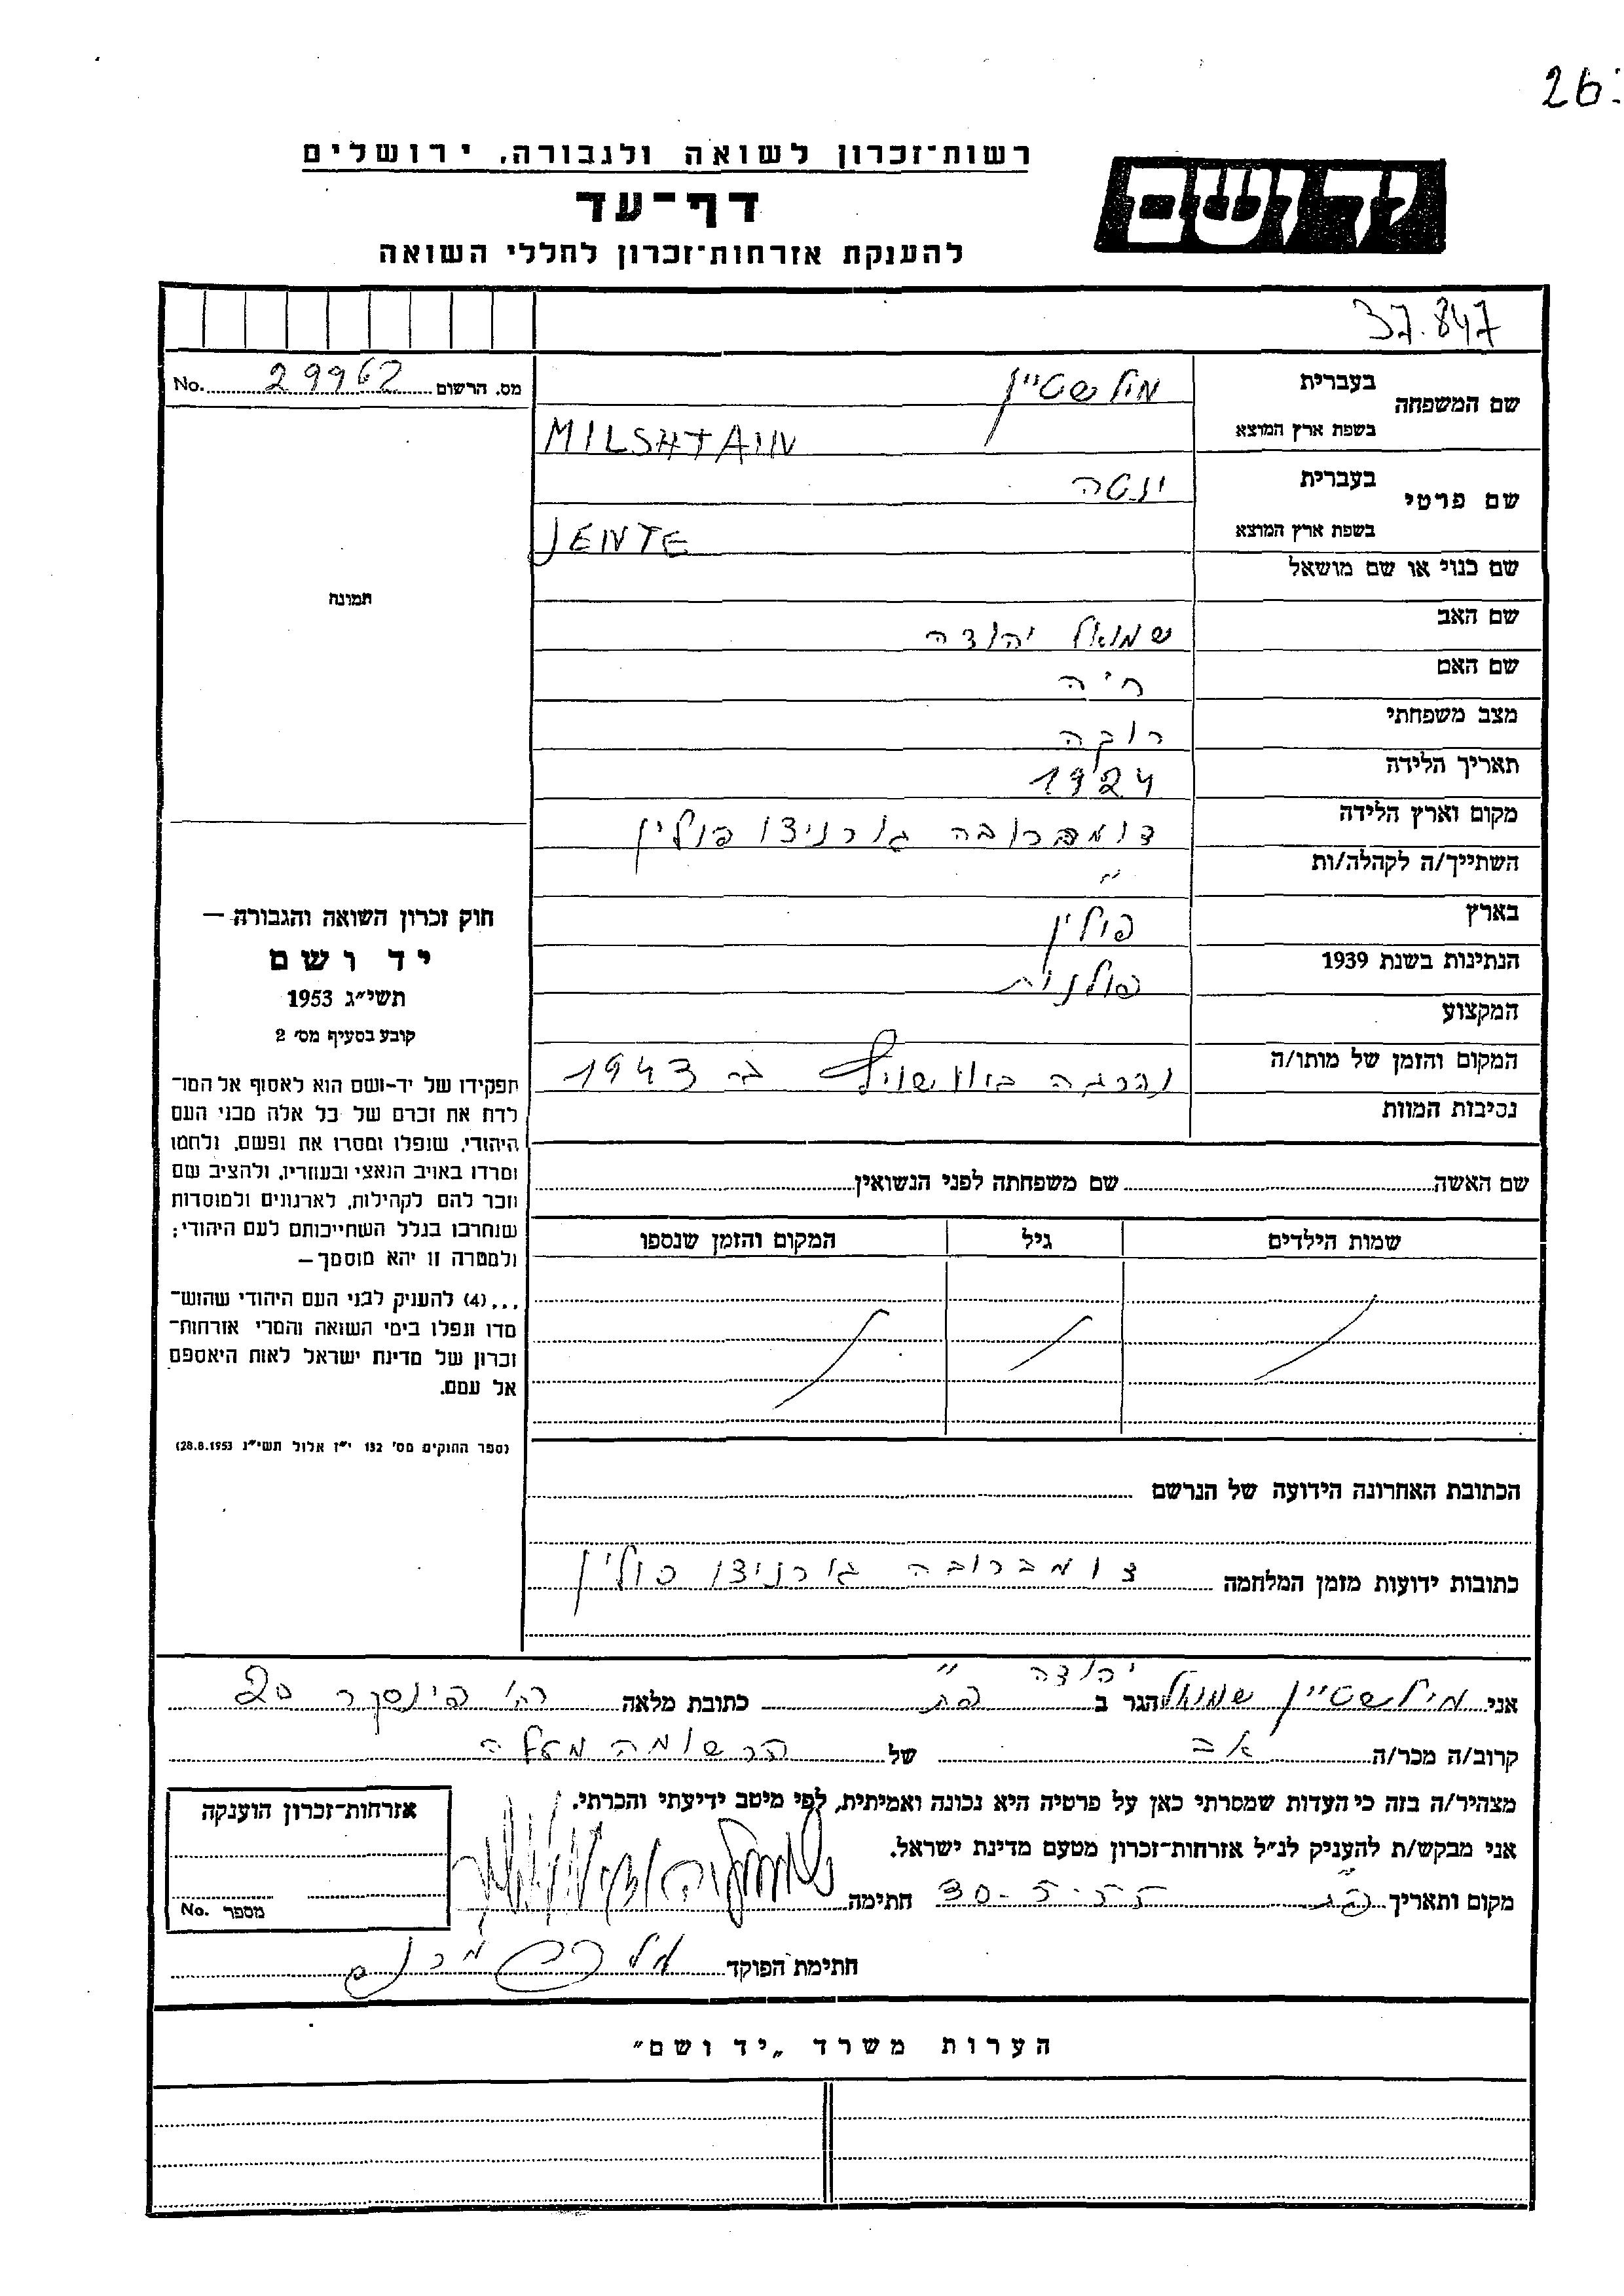 26
רשות-זכרון לשואה ולגבורה, ירושלים
יד ושם
דף-עד
להענקת אזרחות-זכרון לחללי השואה
37.847
מס. הרשום 29962 No.
שם המשפחה
בעברית מילשטיין
בשפת ארץ המוצא MILSHTAIN
שם פרטי
בעברית ינטה
בשפת ארץ המוצא JENTE
שם כנוי או שם מושאל
שם האב שמואל יהודה
שם האם חיה
מצב משפחתי רוקה
תאריך הלידה 1924
מקום וארץ הלידה דומברובה גורניצו פולין
השתייך/ה לקהלה/ות "
בארץ פולין
הנתינות בשנת 1939 פולנית
המקצוע
המקום והזמן של מותו/ה נהרגה באושויץ ב 1943
נסיבות המוות
תמונה
חוק זכרון השואה והגבורה —
יד ושם
תשי"ג 1953
קובע בסעיף מס' 2
תפקידו של יד-ושם הוא לאסוף אל המו-
לדת את זכרם של כל אלה מבני העם
היהודי, שנפלו ומסרו את נפשם, נלחמו
ומרדו באויב הנאצי ובעוזריו, ולהציב שם
וזכר להם לקהילות, לארגונים ולמוסדות
שנחרבו בגלל השתייכותם לעם היהודי;
ולמטרה זו יהא מוסמך —
...(4) להעניק לבני העם היהודי שהוש-
מדו ונפלו בימי השואה והמרי אזרחות-
זכרון של מדינת ישראל לאות היאספם
אל עמם.
(ספר החוקים מס' 132 י"ז אלול תשי"ג 28.8.1953)
שם האשה שם משפחתה לפני הנשואין
שמות הילדים גיל המקום והזמן שנספו
הכתובת האחרונה הידועה של הנרשם
כתובות ידועות מזמן המלחמה דומברובה גורניצו פולין
אני מילשטיין שמואל יהודה הגר ב פת " כתובת מלאה רח' פינסקר 20
קרוב/ה מכר/ה אב של הרשומה מעלה
מצהיר/ה בזה כי העדות שמסרתי כאן על פרטיה היא נכונה ואמיתית, לפי מיטב ידיעתי והכרתי.
אני מבקש/ת להעניק לנ"ל אזרחות-זכרון מטעם מדינת ישראל.
מקום ותאריך 30-5-55 חתימה
חתימת הפוקד
אזרחות-זכרון הוענקה
מספר No.
הערות משרד „יד ושם"